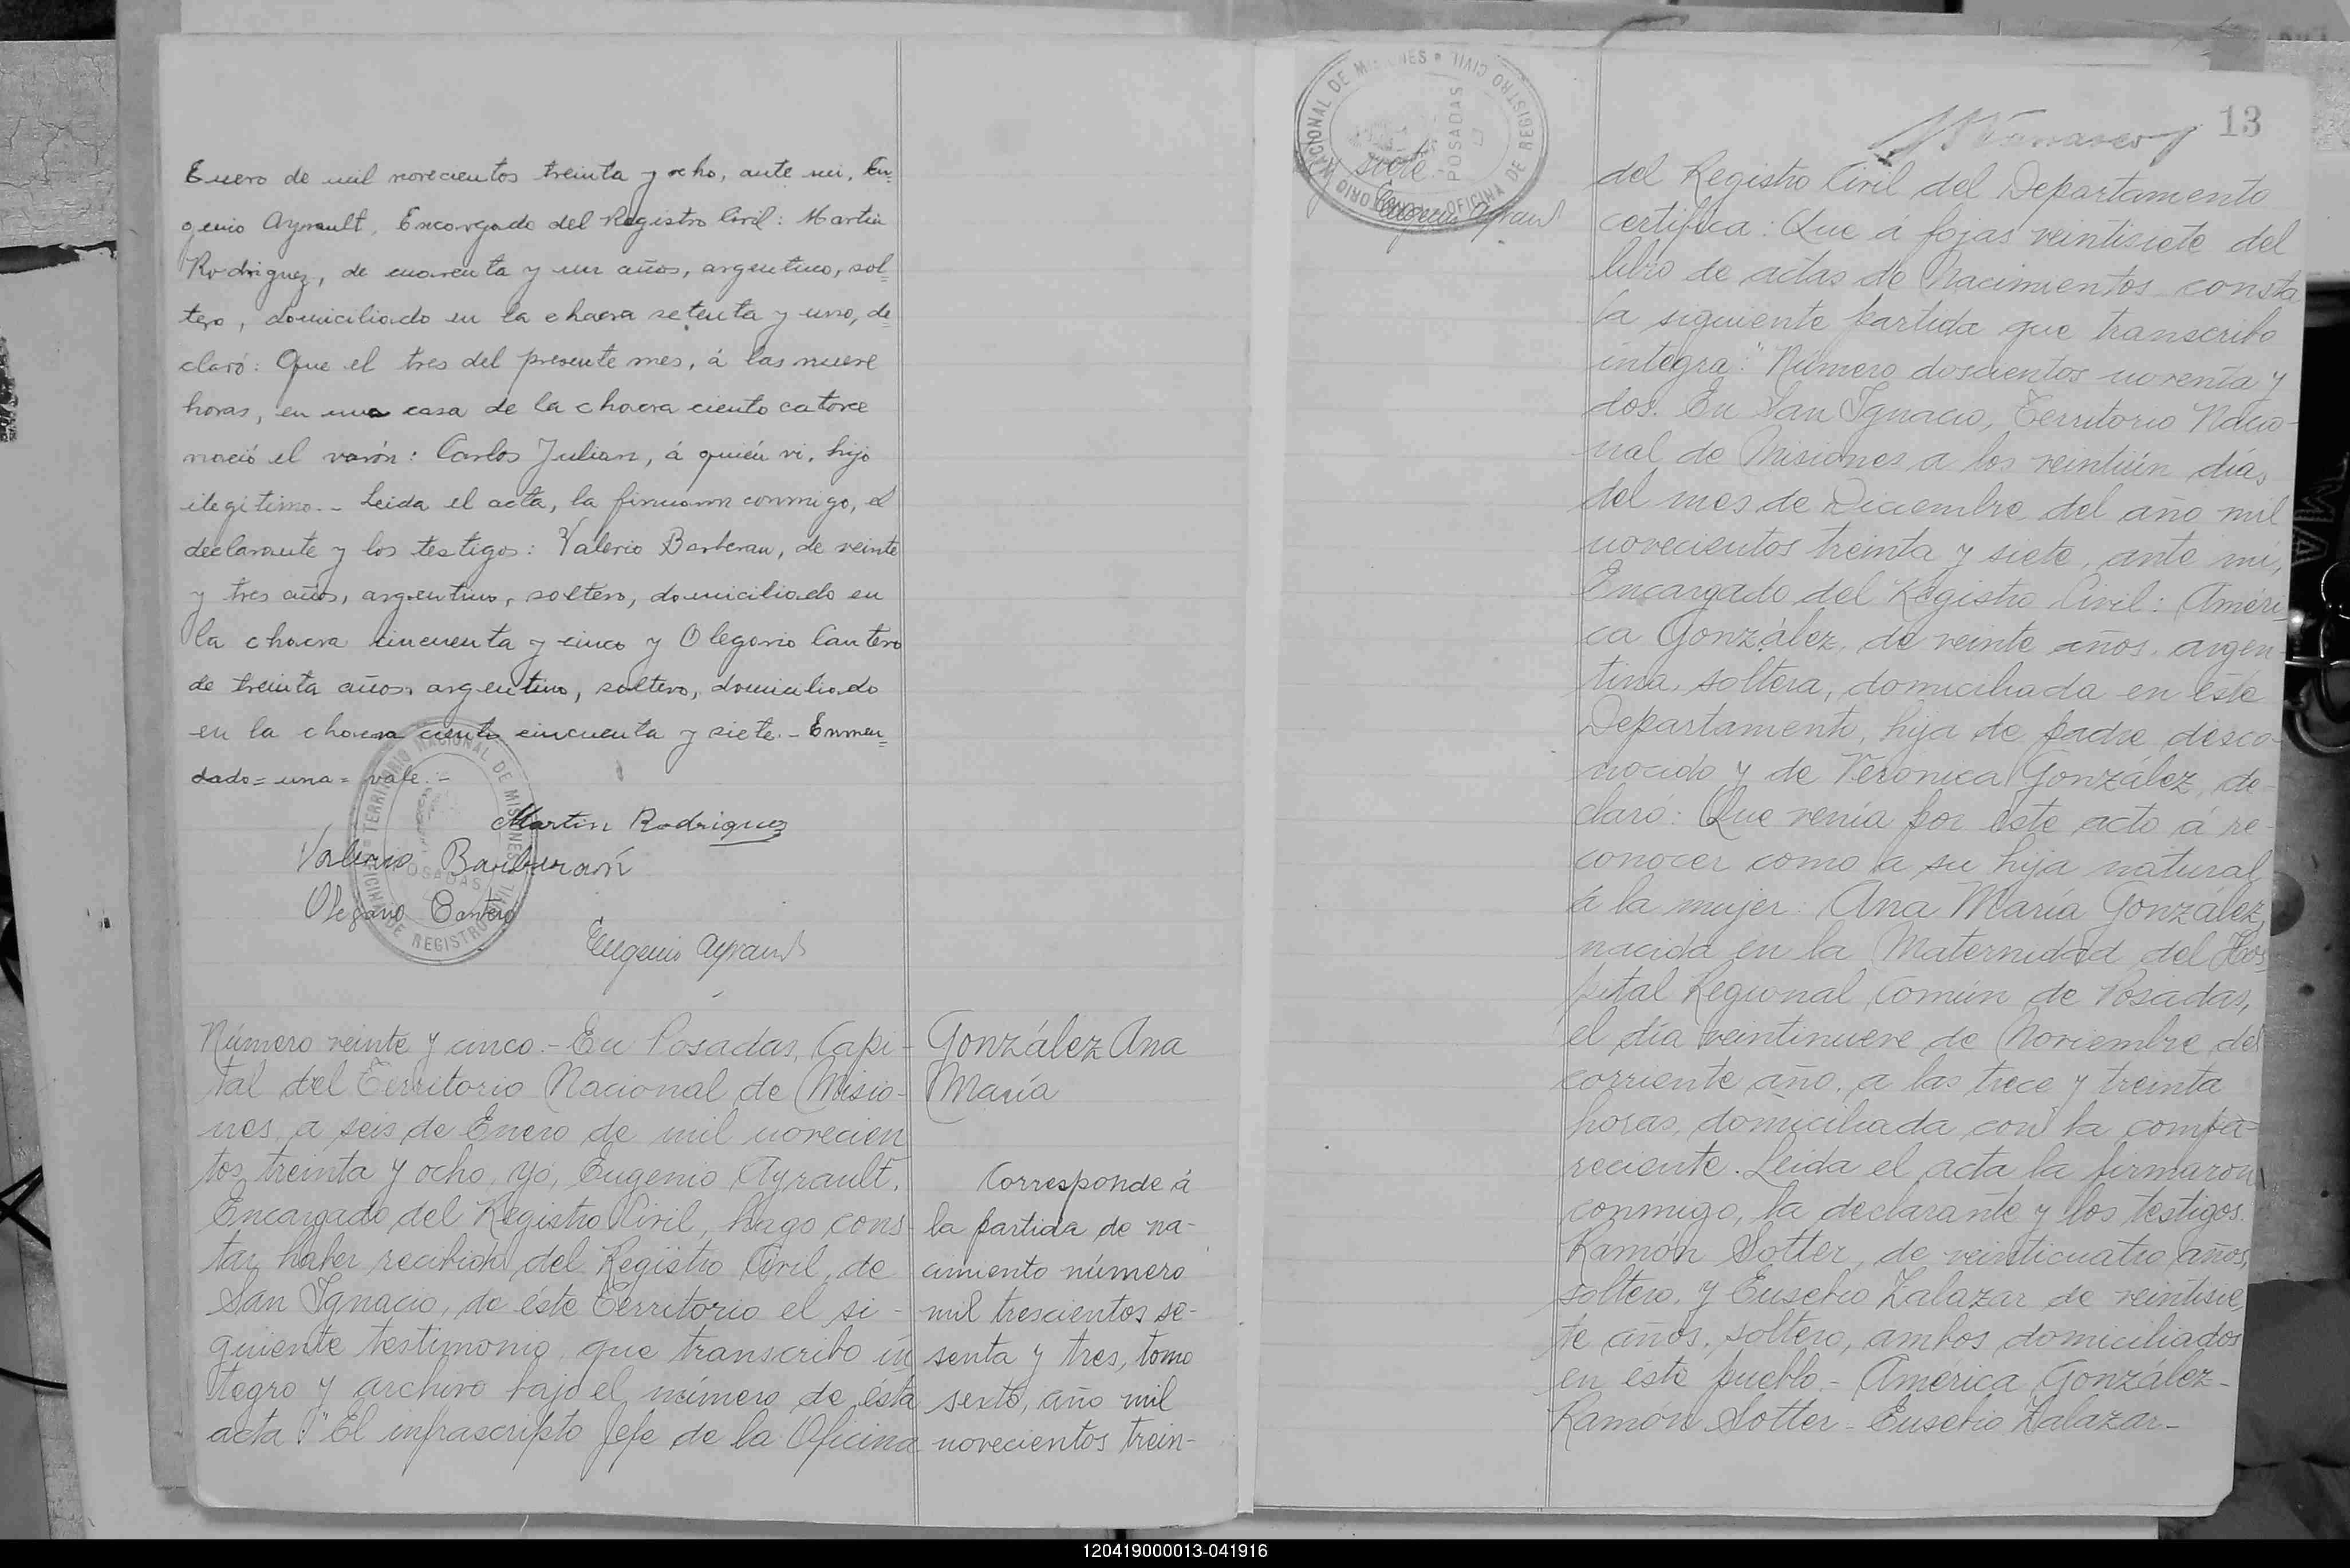 Enero de mil novecientos treinta y ocho, ante mi, Eu=
genio Ayrault, Encargado del Registro Civil: Martin
Rodriguez, de cuarenta y un años, argentino, sol=
tero, domiciliado en la chacra setenta y uno, de=
claró: Que el tres del presente mes, á las nueve
horas, en una casa de la chacra ciento catorce
nació el varón: Carlos Julian, á quién vi, hijo
ilegitimo.- Leida el acta, la firmaron conmigo, el
declarante y los testigos: Valerio Barberan, de veinte
y tres años, argentino, soltero, domiciliado en
la chacra cincuenta y cinco y Olegario Cantero
de treinta años, argentino, soltero, domiciliado
en la chacra ciento cincuenta y siete.- Enmen=
dado= una= vale.-
Martin Rodriguez
Valerio Barberan
Olegario Cantero
Eugenio Ayrault
TERRITORIO NACIONAL DE MISIONES
OFICINA DE REGISTRO CIVIL
POSADAS
Número veinte y cinco.- En Posadas, Capi-
tal del Territorio Nacional de Misio-
nes, a seis de Enero de mil novecien
tos treinta y ocho, yo, Eugenio Ayrault,
Encargado del Registro Civil, hago cons-
tar haber recibido del Registro Civil, de
San Ignacio, de éste Territorio el si-
guiente testimonio que transcribo ín
tegro y archivo bajo el número de ésta
acta: "El infrascripto Jefe de la Oficina
González Ana
María
Corresponde á
la partida de na-
cimiento número
mil trescientos se-
senta y tres, tomo
sexto, año mil
novecientos trein-
TERRITORIO NACIONAL DE MISIONES
OFICINA DE REGISTRO CIVIL
POSADAS
siete.
Eugenio Ayrault
13
del Registro Civil del Departamento
certifica: Que á fojas veintisiete del
libro de actas de Nacimientos consta
la siguiente partida que transcribo
íntegra: "Número doscientos noventa y
dos. En San Ignacio, Territorio Nacio-
nal de Misiones a los veintiún días
del mes de Diciembre del año mil
novecientos treinta y siete, ante mi,
Encargado del Registro Civil: Améri-
ca González, de veinte años, argen-
tina, soltera, domiciliada en éste
Departamento, hija de padre desco-
nocido y de Verónica González, de-
claró: Que venía por este acto á re-
conocer como a su hija natural
á la mujer: Ana María González,
nacida en la Maternidad del Hos=
pital Regional Común de Posadas,
el día veintinueve de Noviembre del
corriente año, a las trece y treinta
horas, domiciliada con la compa-
reciente. Leida el acta la firmaron
conmigo, la declarante y los testigos.
Ramón Sotter, de veinticuatro años,
soltero, y Eusebio Zalazar de veintisie
te años, soltero, ambos domiciliados
en este pueblo.- América González-
Ramón Sotter- Eusebio Zalazar-
120419000013-041916